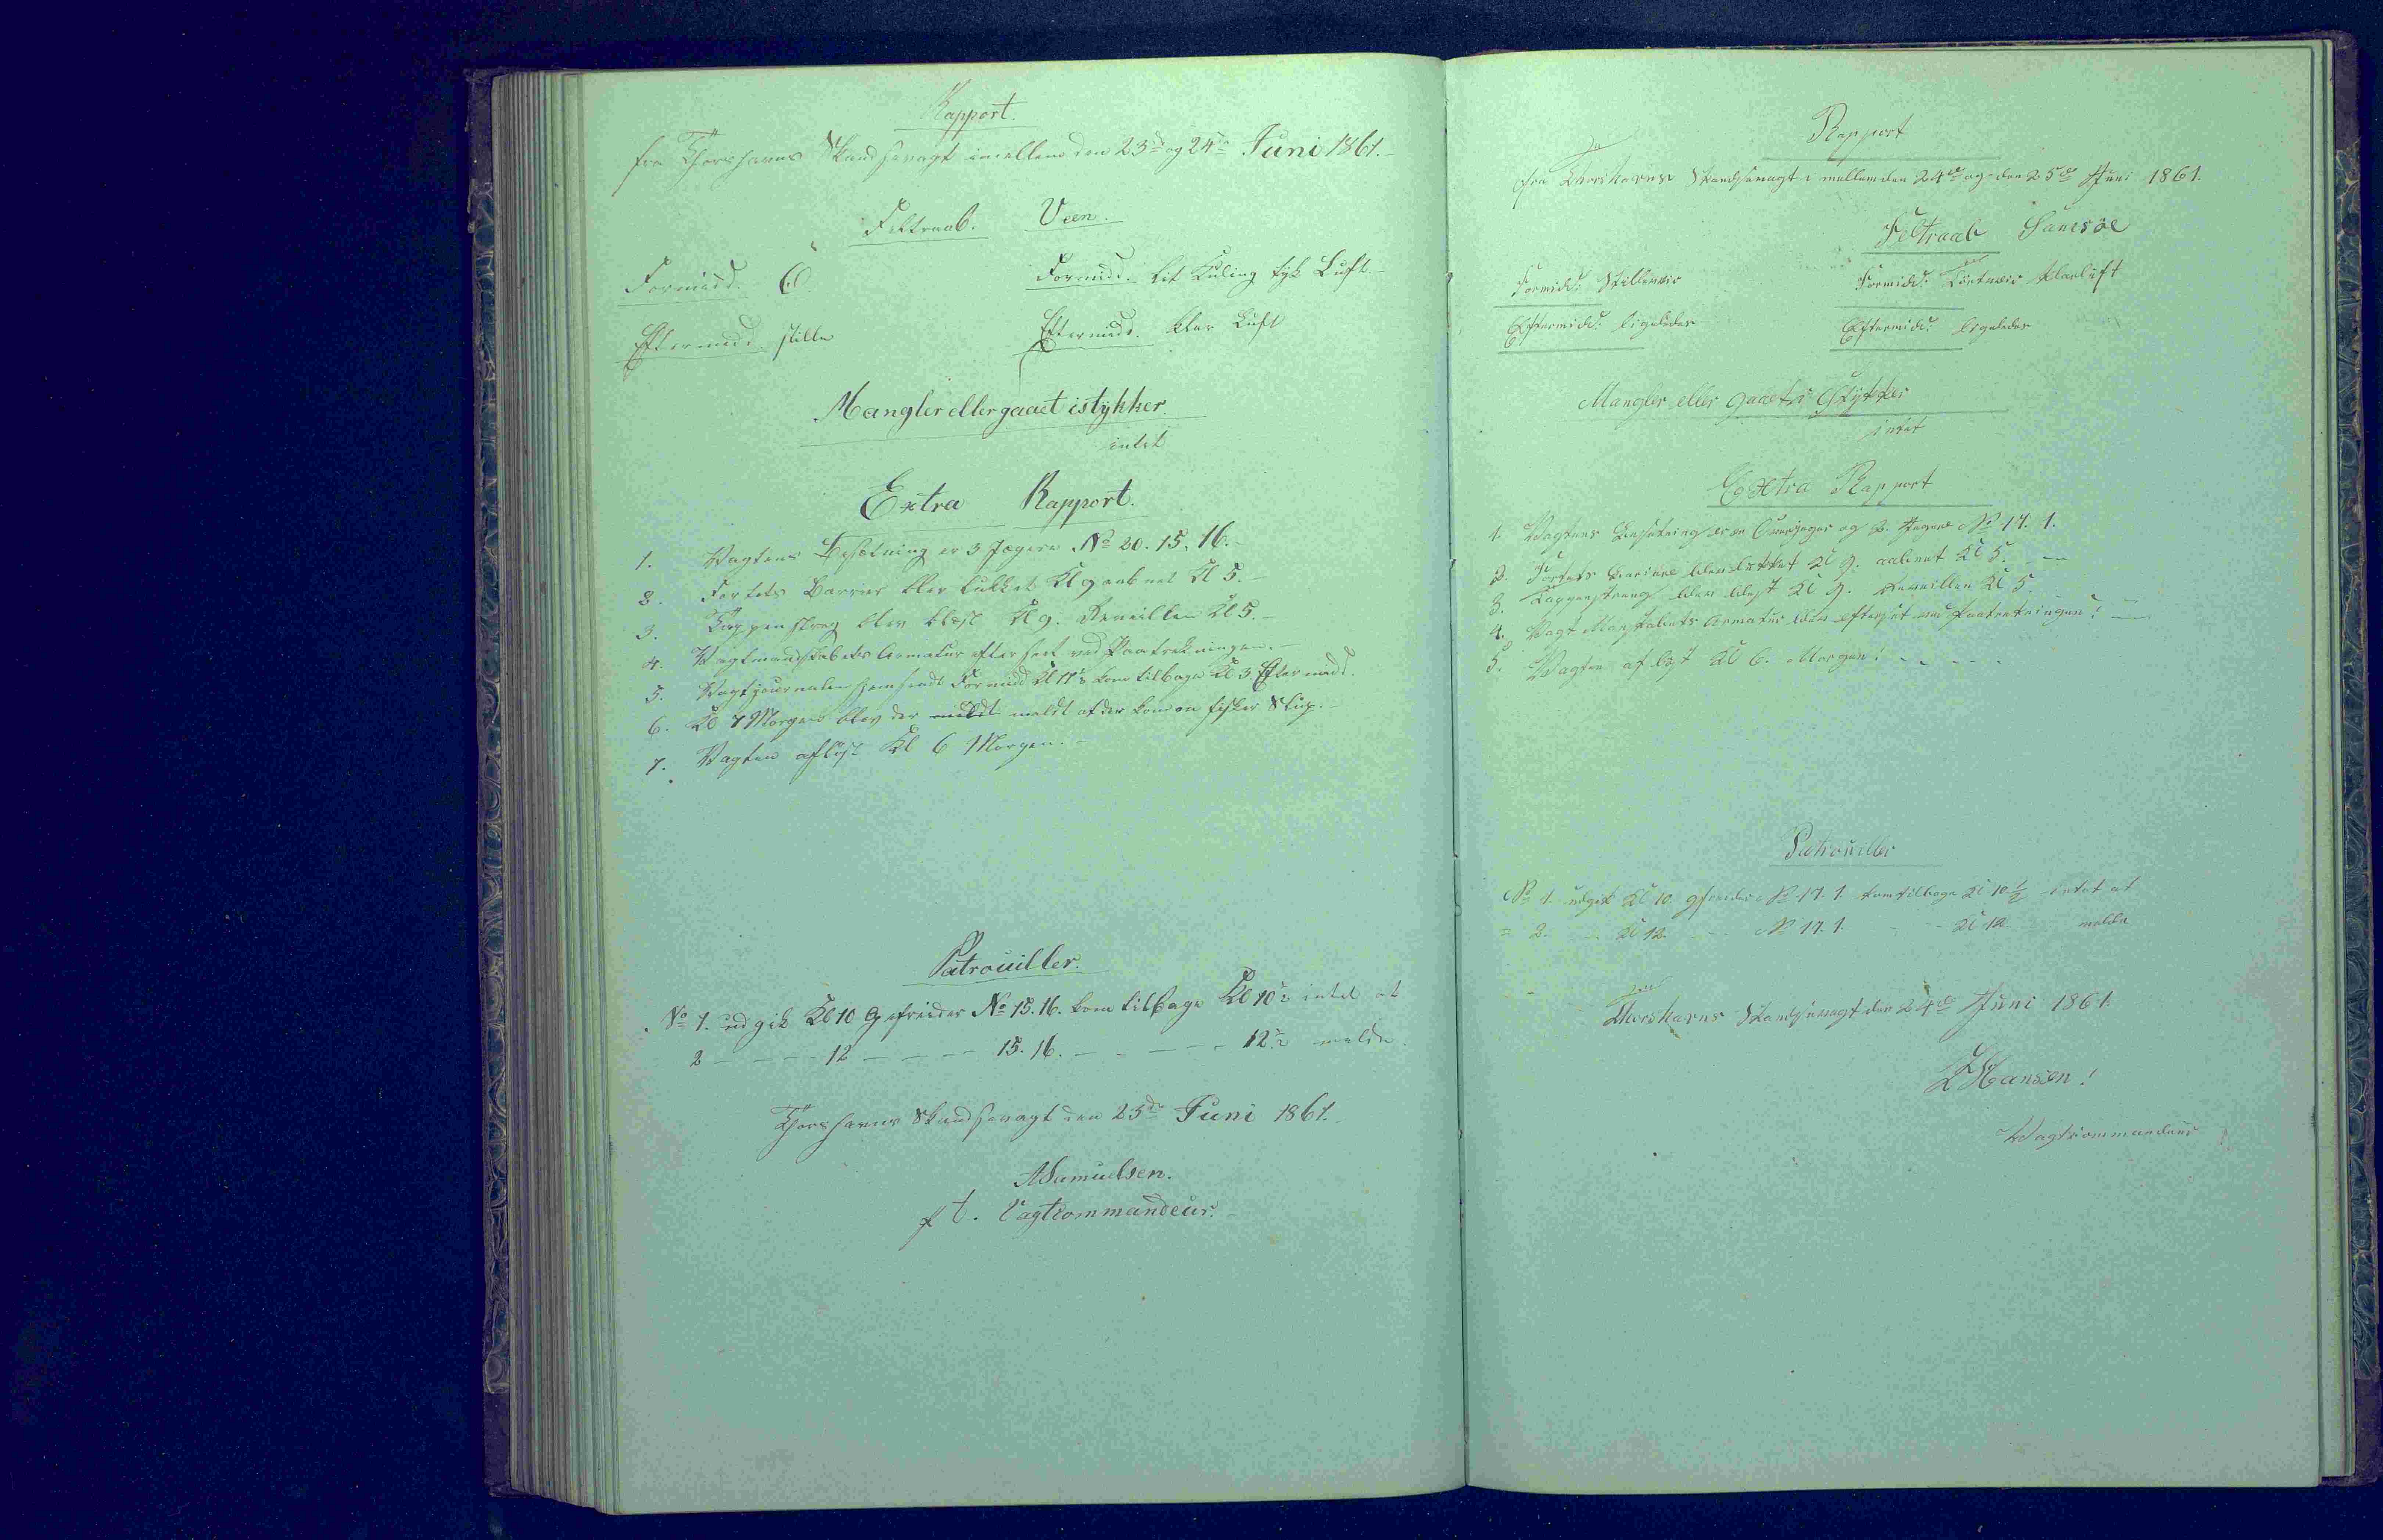 Rapport.
fra Thorshavns Skandsevagt imellem den 23de og 24de Juni 1861.
Feltraab. Veen.
Formidd. O Formidd. lit Kuling tyk Luft.
Eftermidd. stille Eftermidd. klar Luft
Mangler eller gaaet istykker.
intet
Extra Rapport.
1. Vagtens Besætning er 3 Jægere No 20. 15. 16.
2. Fortets Barriere blev lukket Kl 9 aabnet Kl 5.
3. Tappenstreg blev blæst Kl 9. Reveillen Kl 5.
4. Vagtmandskabets Armatur efterseet ved Paatrekningen.
5. Vagtjournalen hjemsendt Formidd Kl 11½ kom tilbage Kl 3 Eftermidd.
6. Kl 7 Morgen blev der meldt at der kom en fisker Slup.
7. Vagten afløst Kl 6 Morgen.
Patrouiller.
No 1. udgik Kl 10 Gefreider No 15. 16. kom tilbage Kl 10½ intet at
2 - - - - 12 - - - - 15. 16. - - - - - 12½ melde.
Thorshavns Skandsevagt den 23de Juni 1861.
A Samuelsen.
p t. Vagtcommandeur.
Rapport
fra Thorshavns Skandsevagt i mellem den 24de og den 25de Juni 1861.
Feltraab Samsöe
Formidd: Stillevær Formidd: Törtvær klarluft
Eftermidd: ligeledes Eftermidd: ligeledes
Mangler eller gaaet i Stykker
intet
Extra Rapport
1. Vagtens Besætning er en Overjæger og 2. Jægere No 17. 1.
2. Fortets Bariere blev lukket Kl 9. aabnet Kl 5.
3. Tappenstreng blev blæst Kl 9. Reveillen Kl 5.
4. Vagt Manskabets Armatur blev efterset ved Paatrekningen!
5. Vagten aflöst Kl 6. Morgen!
Patrouiller
No 1. udgik Kl 10. gfreider No 17. 1. kom tilbage Kl 10½ intet at
= 2. - - Kl 12. - - No 17. 1. - - Kl 12 melde
Thorshavns Skandsevagt den 24de Juni 1861.
Hansen!
Vagtcommandeur